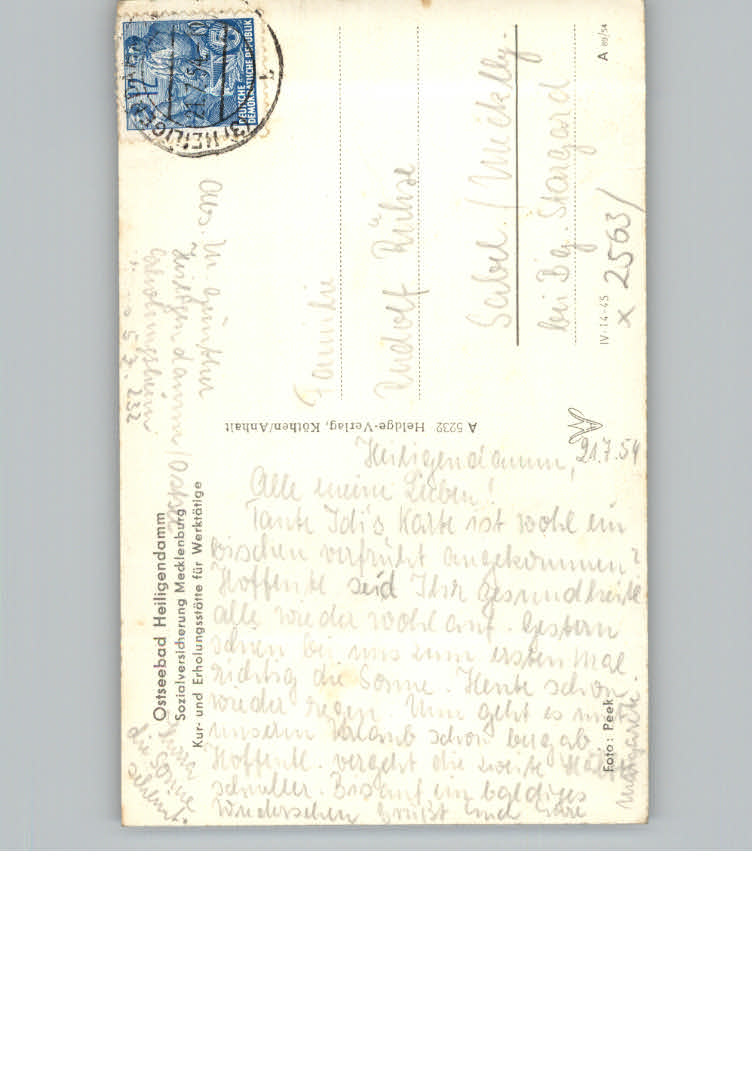 Ostseebad Heiligendamm
Sozialversicherung Mecklenburg
Kur- und Erholungsstätte für Werktätige
A 5232 Heldge-Verlag, Köthen/Anhalt
Foto: Peek
IV-14-45
A 89/54
DEUTSCHE
DEMOKRATISCHE REPUBLIK
12
HEILIGE
21.7.54
Abs. M. Günther
Heiligendamm/Ostsee
Erholungsheim
5. Z. 232
Familie
Rudolf Rühse
Sabel / Meckllg.
bei Bg. Stargard
x 2563/
Heiligendamm, 21.7.54
Alle meine Lieben!
Tante Idi's Karte ist wohl ein
bischen verfrüht angekommen?
Hoffentl. seid Ihr gesundheitl.
alle wieder wohlauf. Gestern
schien bei uns zum ersten Mal
richtig die Sonne. Heute schon
wieder Regen. Nun geht es mit
unserm Urlaub schon bergab
Hoffentl. vergeht die zweite Hälfte
schneller. Bis auf ein baldiges
Wiedersehen grüßt Euch Eure
Margarete
die Sonne
scheint.